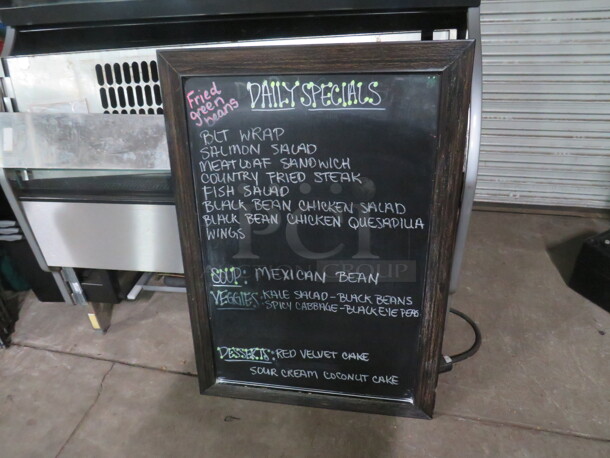 Fried
green
beans
DAILY SPECIALS
BLT WRAP
SALMON SALAD
MEATLOAF SANDWICH
COUNTRY FRIED STEAK
FISH SALAD
BLACK BEAN CHICKEN SALAD
BLACK BEAN CHICKEN QUESADILLA
WINGS
PCI
GROUP
SOUP: MEXICAN BEAN
VEGGIES: KALE SALAD - BLACK BEANS
SPICY CABBAGE - BLACK EYE PEAS
DESSERTS: RED VELVET CAKE
SOUR CREAM COCONUT CAKE